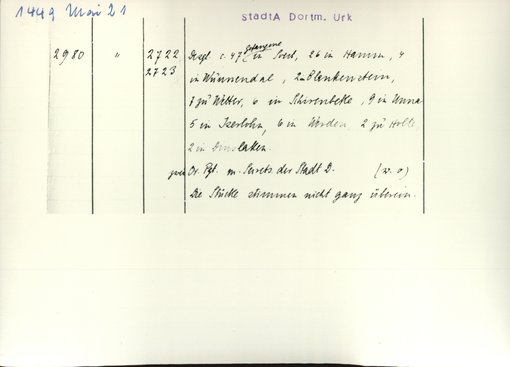 1449 Mai 21
StadtA Dortm. Urk
2980 " 2722 Desgl. c. 47 Gefangene in Soest, 26 in Hamm, 4
2723 in Wünnendal, 2 in Blankenstein,
7 zu Wetter, 6 in Schirenbeke, 9 in Unna
5 in Iserlohn, 6 in Werden, 2 zu Holte
2 in Dinslaken.
Or. Pgt. m. Secrets der Stadt D. (w. o)
Die Stücke stimmen nicht ganz überein.